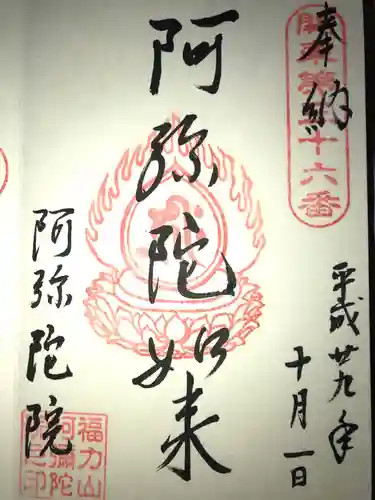 奉納
平成廿九年
十月一日
阿弥陀如来
阿弥陀院
福力山
阿彌陀
院之印